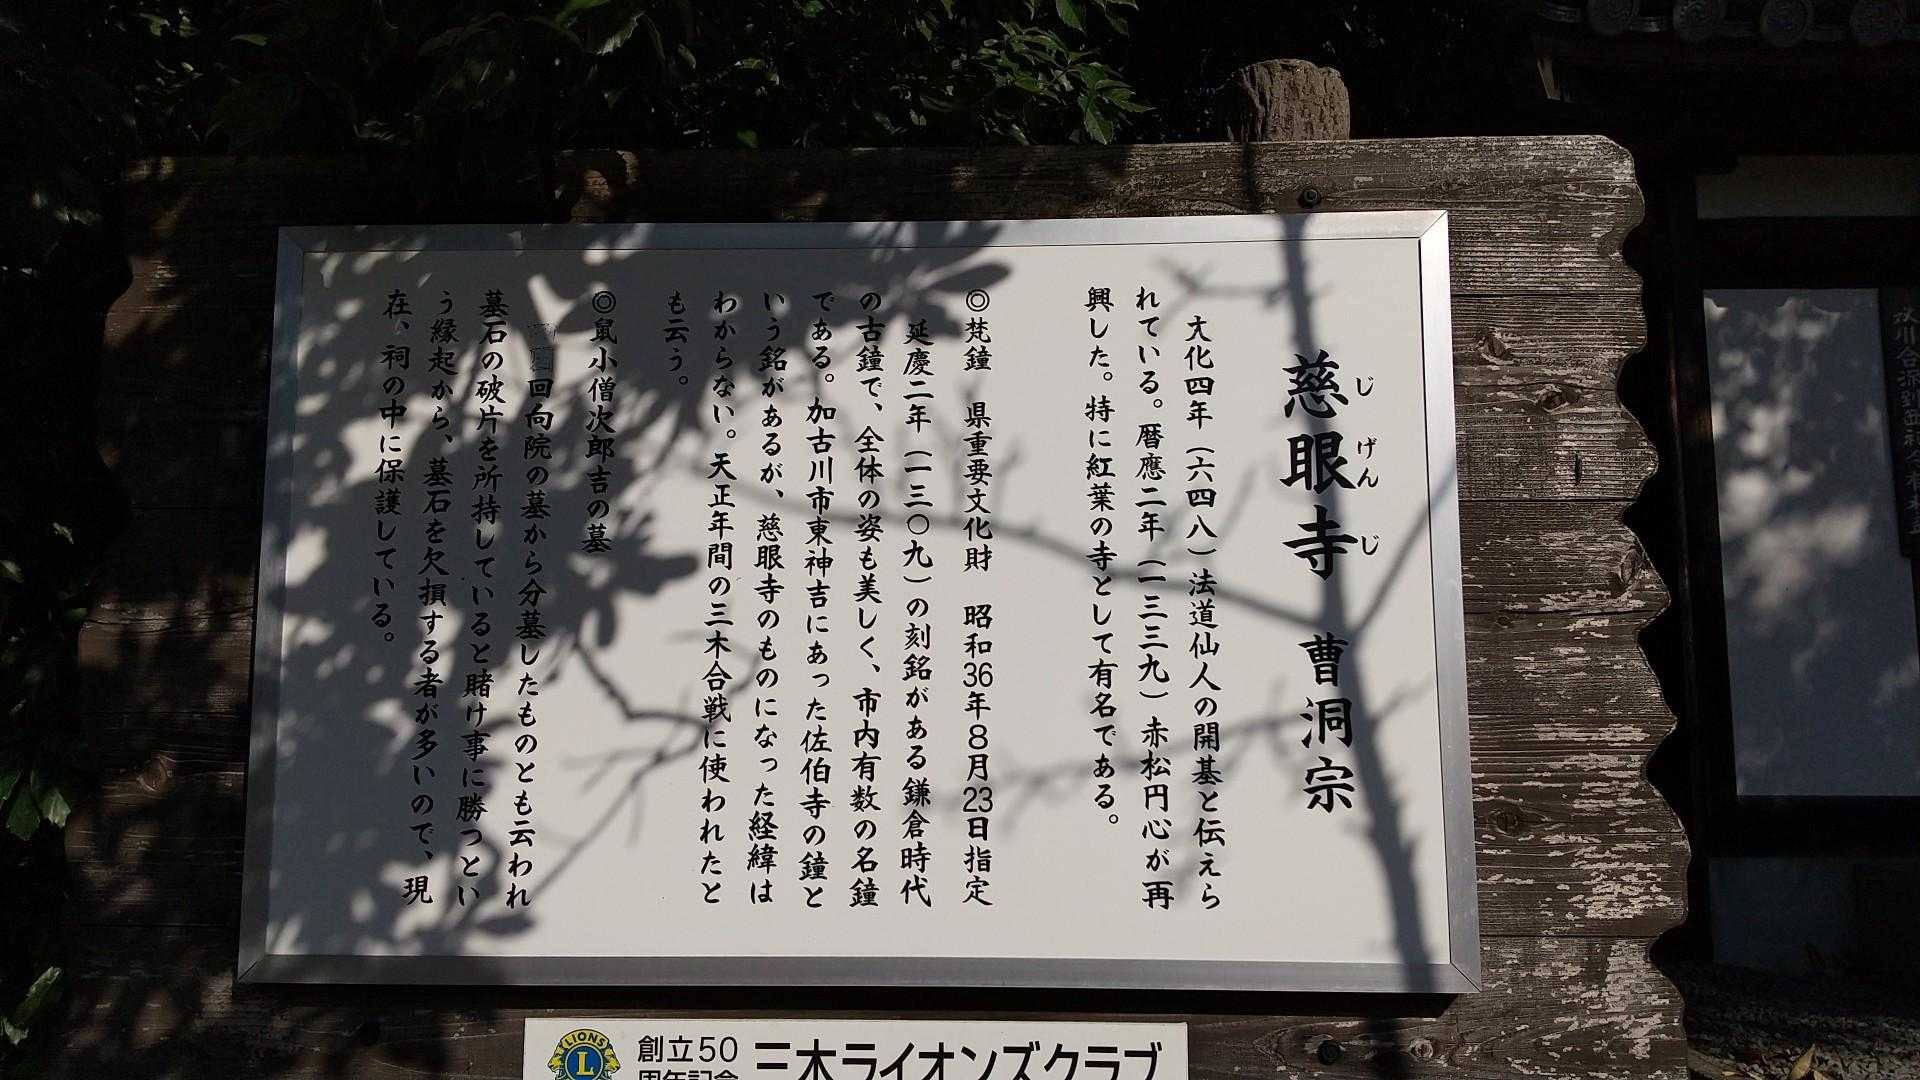 慈眼寺 曹洞宗
じ げん じ
大化四年（六四八）法道仙人の開基と伝えら
れている。暦應二年（一三三九）赤松円心が再
興した。特に紅葉の寺として有名である。
◎梵鐘 県重要文化財 昭和36年8月23日指定
延慶二年（一三〇九）の刻銘がある鎌倉時代
の古鐘で、全体の姿も美しく、市内有数の名鐘
である。加古川市東神吉にあった佐伯寺の鐘と
いう銘があるが、慈眼寺のものになった経緯は
わからない。天正年間の三木合戦に使われたと
も云う。
◎鼠小僧次郎吉の墓
回向院の墓から分墓したものとも云われ
墓石の破片を所持していると賭け事に勝つとい
う縁起から、墓石を欠損する者が多いので、現
在、祠の中に保護している。
LIONS
L
創立50
周年記念
三木ライオンズクラブ